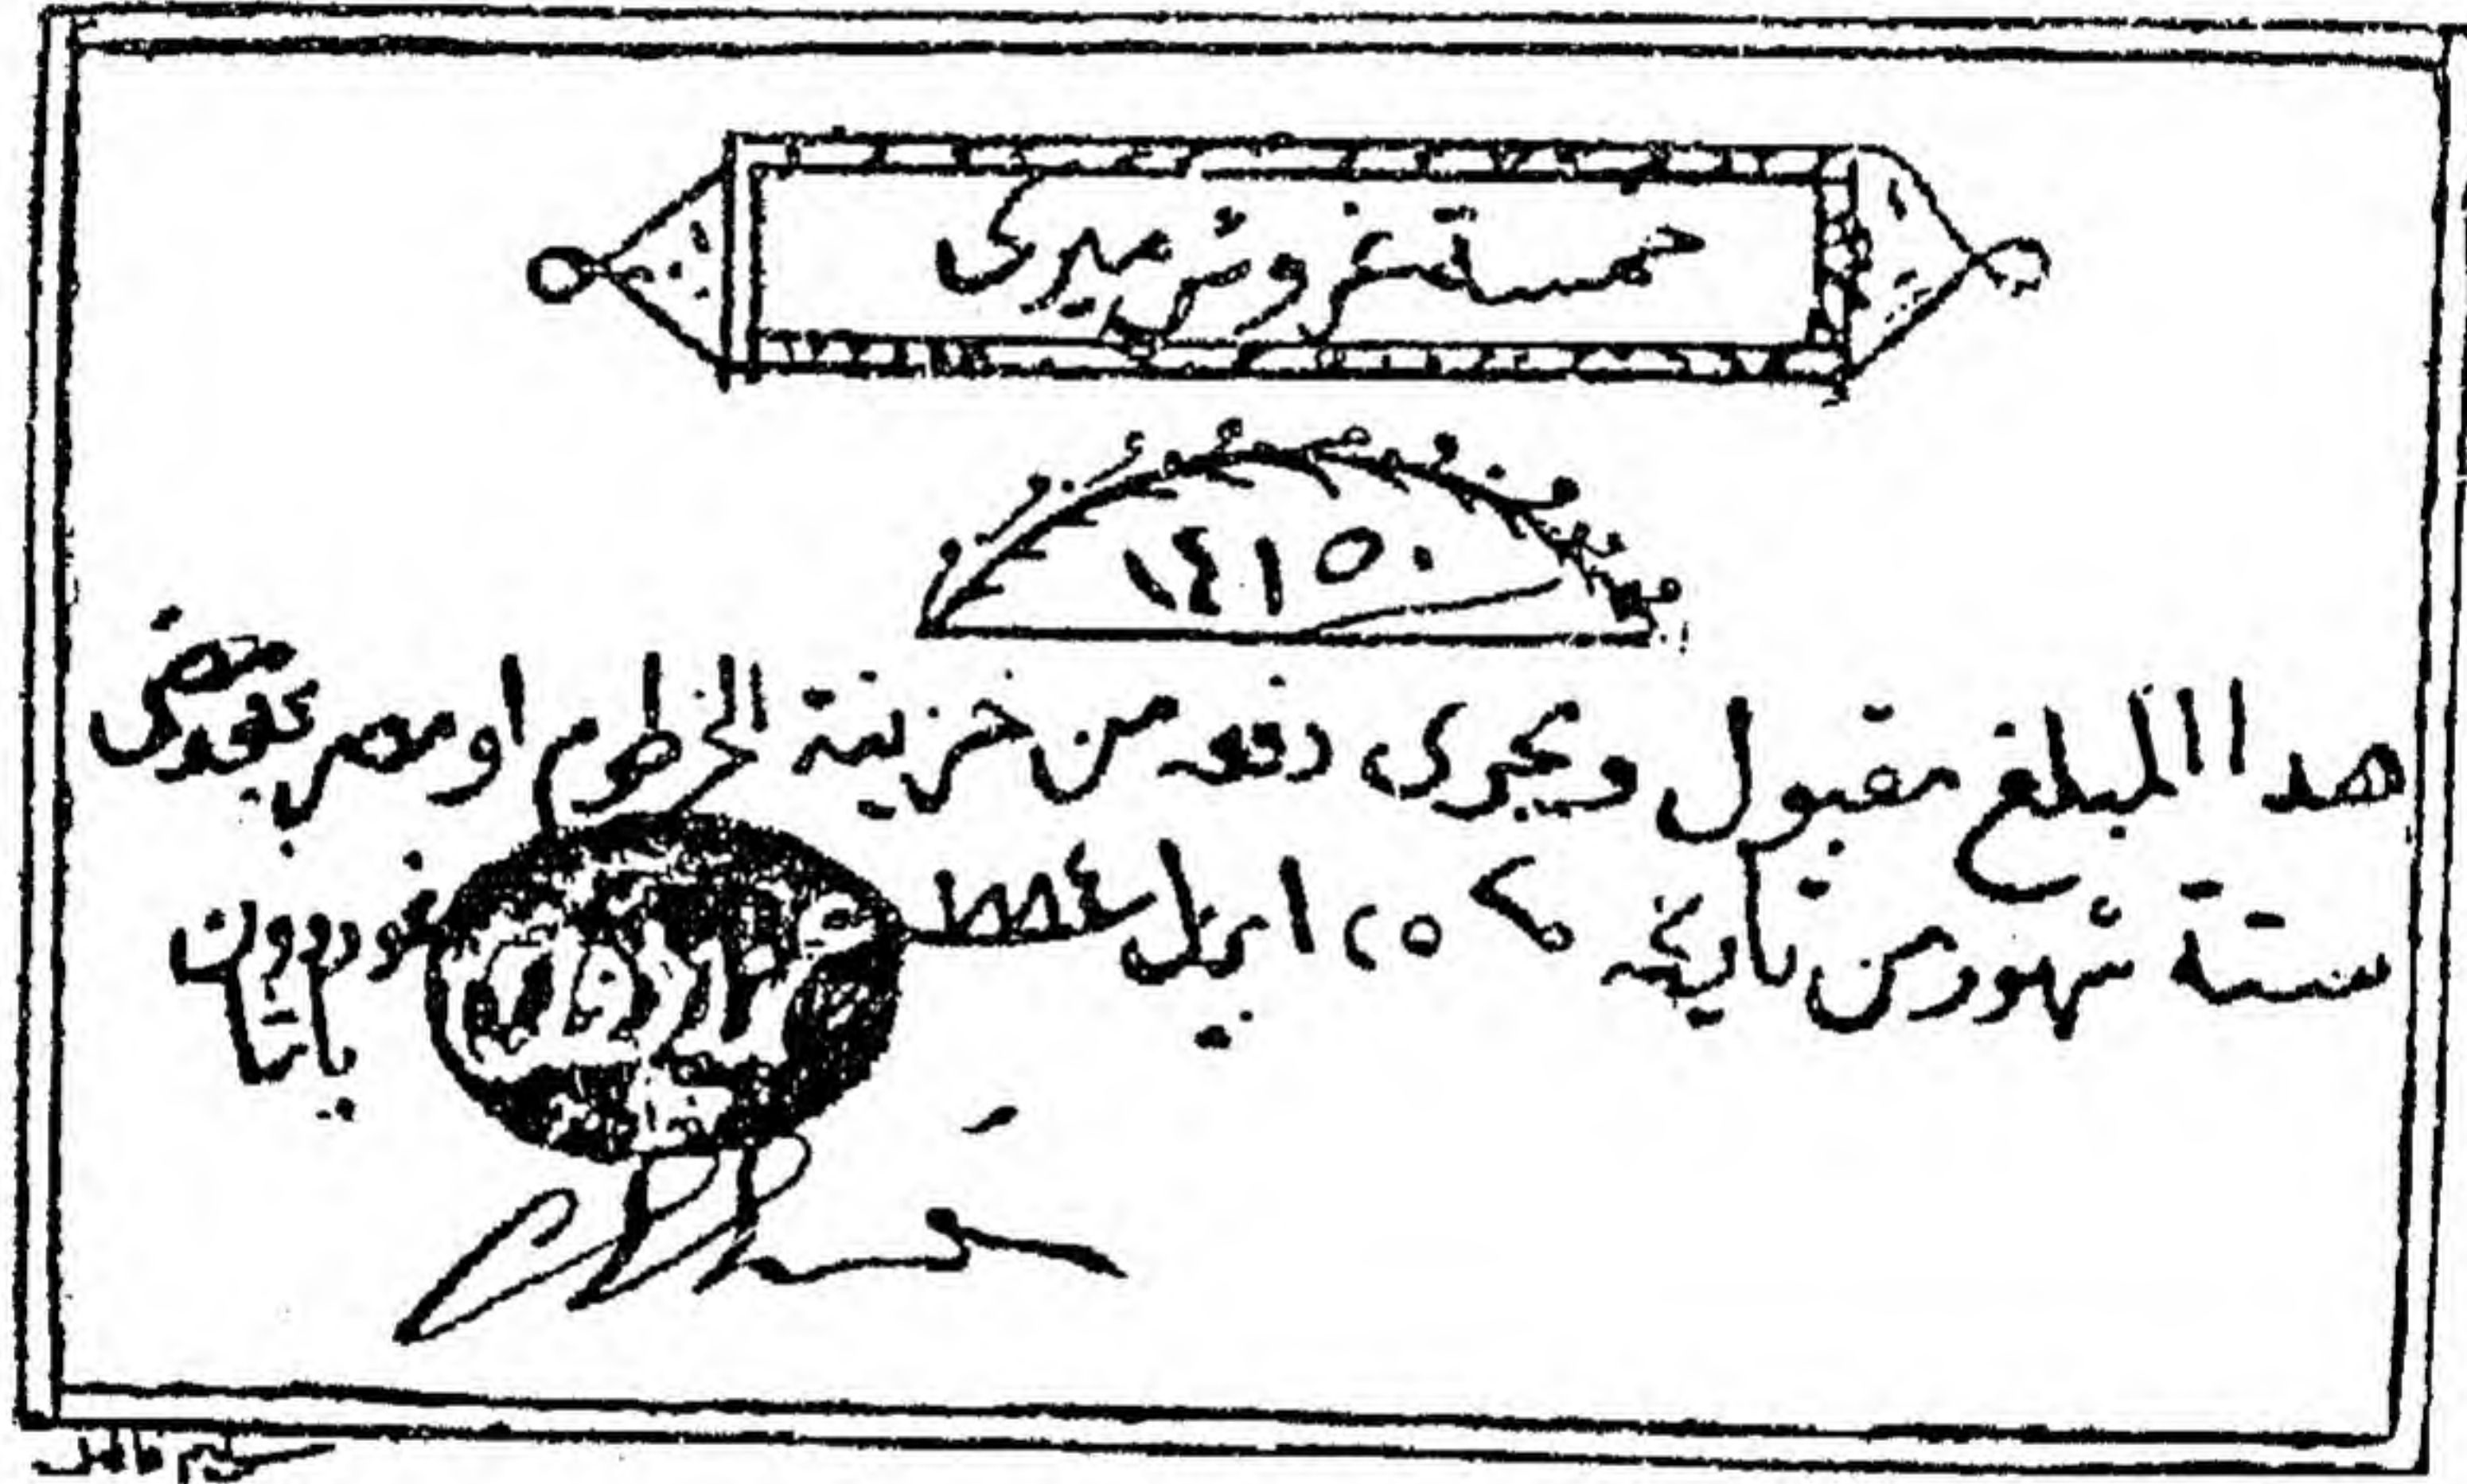 خمسة غروش ميرى
١٤١٥٠
هذا المبلغ مقبول ويجرى دفعه من خزينة الخرطوم او مصر بعد مضى
ستة شهور من تاريخه ٢٥ ابريل سنة ١٨٨٤
غوردون باشا